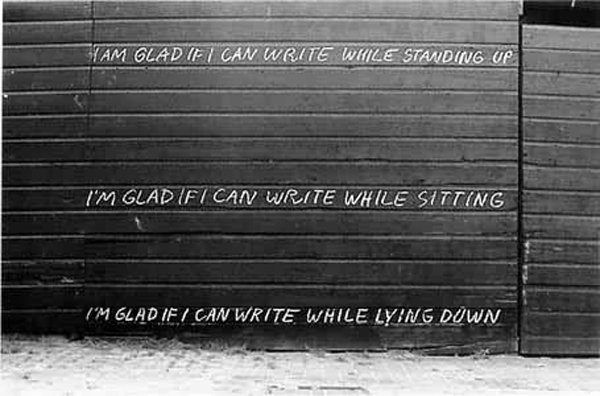 I AM GLAD IF I CAN WRITE WHILE STANDING UP
I'M GLAD IF I CAN WRITE WHILE SITTING
I'M GLAD IF I CAN WRITE WHILE LYING DOWN